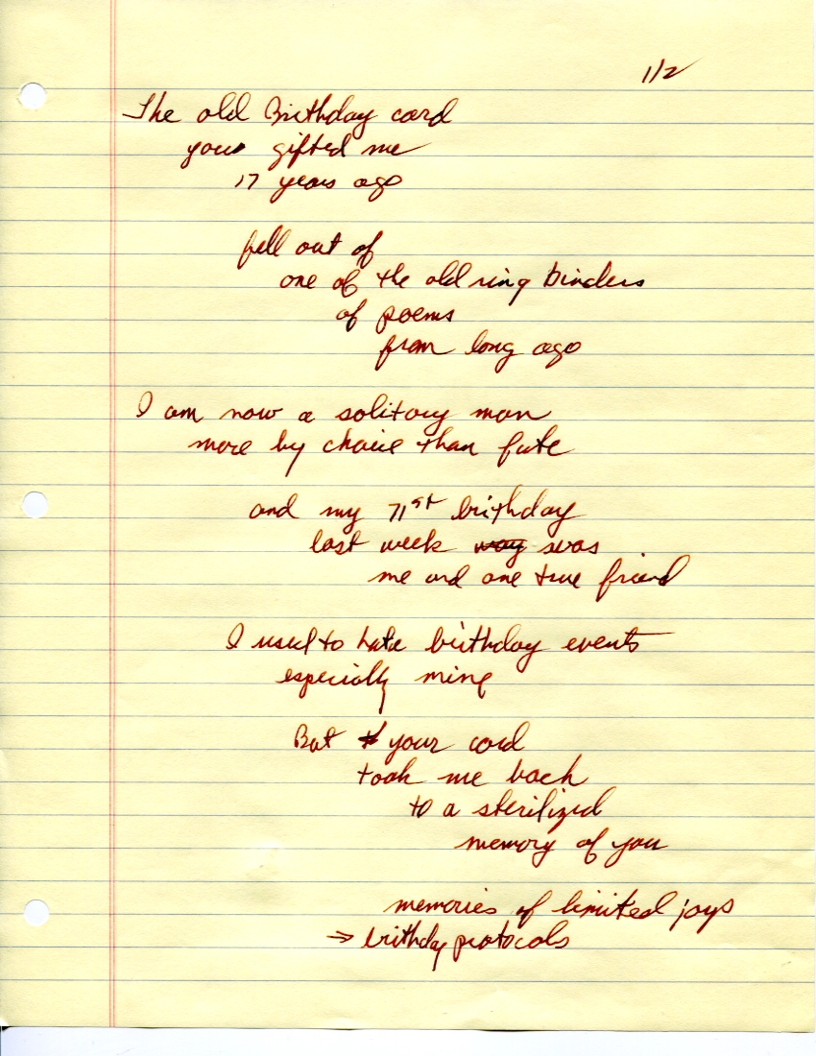 1/2
The old Birthday card
you gifted me
17 years ago
fell out of
one of the old ring binders
of poems
from long ago
I am now a solitary man
more by choice than fate
and my 71st birthday
last week was
me and one true friend
I used to hate birthday events
especially mine
But your card
took me back
to a sterilized
memory of you
memories of limited joys
→ birthday protocols